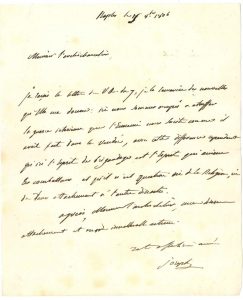 Naples le 5 9bre 1806
Monsieur l'archichancelier
je reçois la lettre de V.A. du 7, je la remercie des nouvelles
qu'elle me donne; ici nous sommes occupés à étouffer
la guerre intérieure que l'Ennemi nous suscite comme il
avait fait dans la Vendée, avec cette différence cependant
qui ici l'esprit de brigandage est l'Esprit qui anime
les combattans et qu'il n'est question ni de la Religion, ni
de leur attachement à l'autre dinastie.
agréez, Monsieur l'archichancelier, mon sincère
attachement et mon inaltérable estime.
votre affectionné ami
Joseph